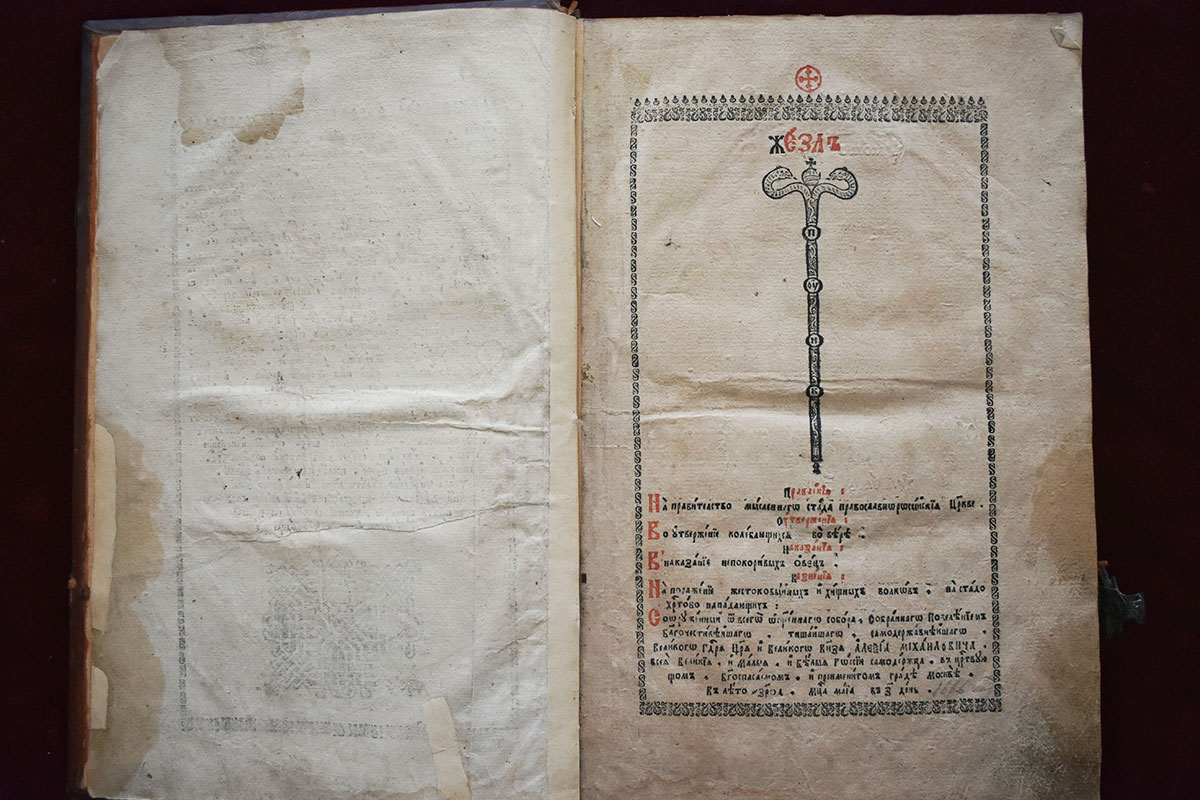 Жезлъ
П
ОУ
Н
К
Правленїѧ :
На правительство мысленнагѡ стада православнорѡссїйскїѧ Црⷭкве .
Оутверженїѧ :
Во оутверженїе колеблющихсѧ во вѣрѣ .
Наказанїѧ :
В наказанїе непокоривыхъ ѻвецъ .
Казненїѧ :
На пораженїе жестоковыйныхъ и хищныхъ волкѡвъ , на стадо
Хрⷭтово нападающихъ :
Соѡруженный ѿ всегѡ ѡсщ҃еннагѡ собора , собраннагѡ повелѣнїемъ
бл҃гочестивѣйшагѡ , тишайшагѡ , самодержавнѣйшагѡ ,
великогѡ гдⷭрѧ цр҃ѧ и великогѡ кнѧзѧ Алеѯїа Мїхаиловича ,
всеѧ великїѧ , и малыѧ , и бѣлыѧ рѡссїи самодержца , въ црⷭтвую
щемъ , бг҃оспасаемомъ , и преименитомъ градѣ Москвѣ .
Въ лѣто ҂зрод , мцⷭа маїа въ з҃ день .